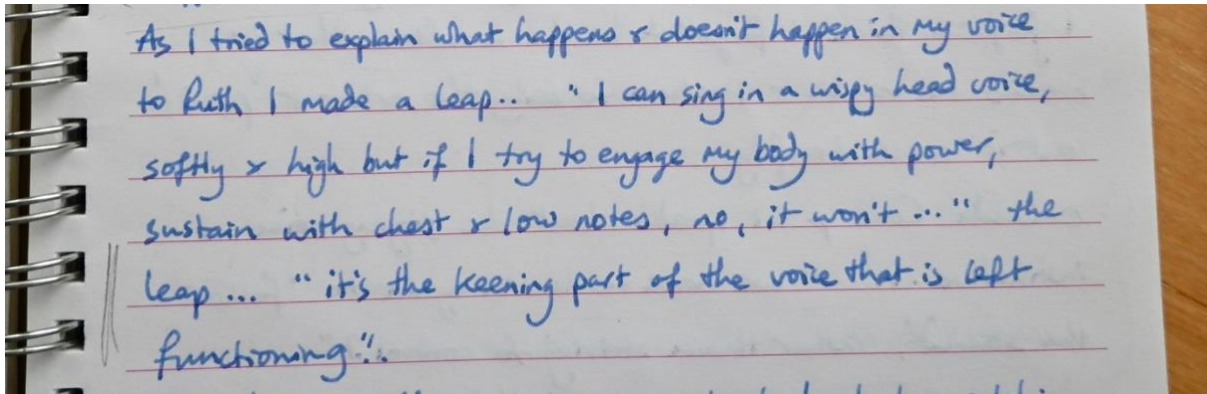 As I tried to explain what happens & doesn't happen in my voice
to Ruth I made a leap.. "I can sing in a wispy head voice,
softly & high but if I try to engage my body with power,
sustain with chest & low notes, no, it won't..." the
leap... "it's the keening part of the voice that is left
functioning".